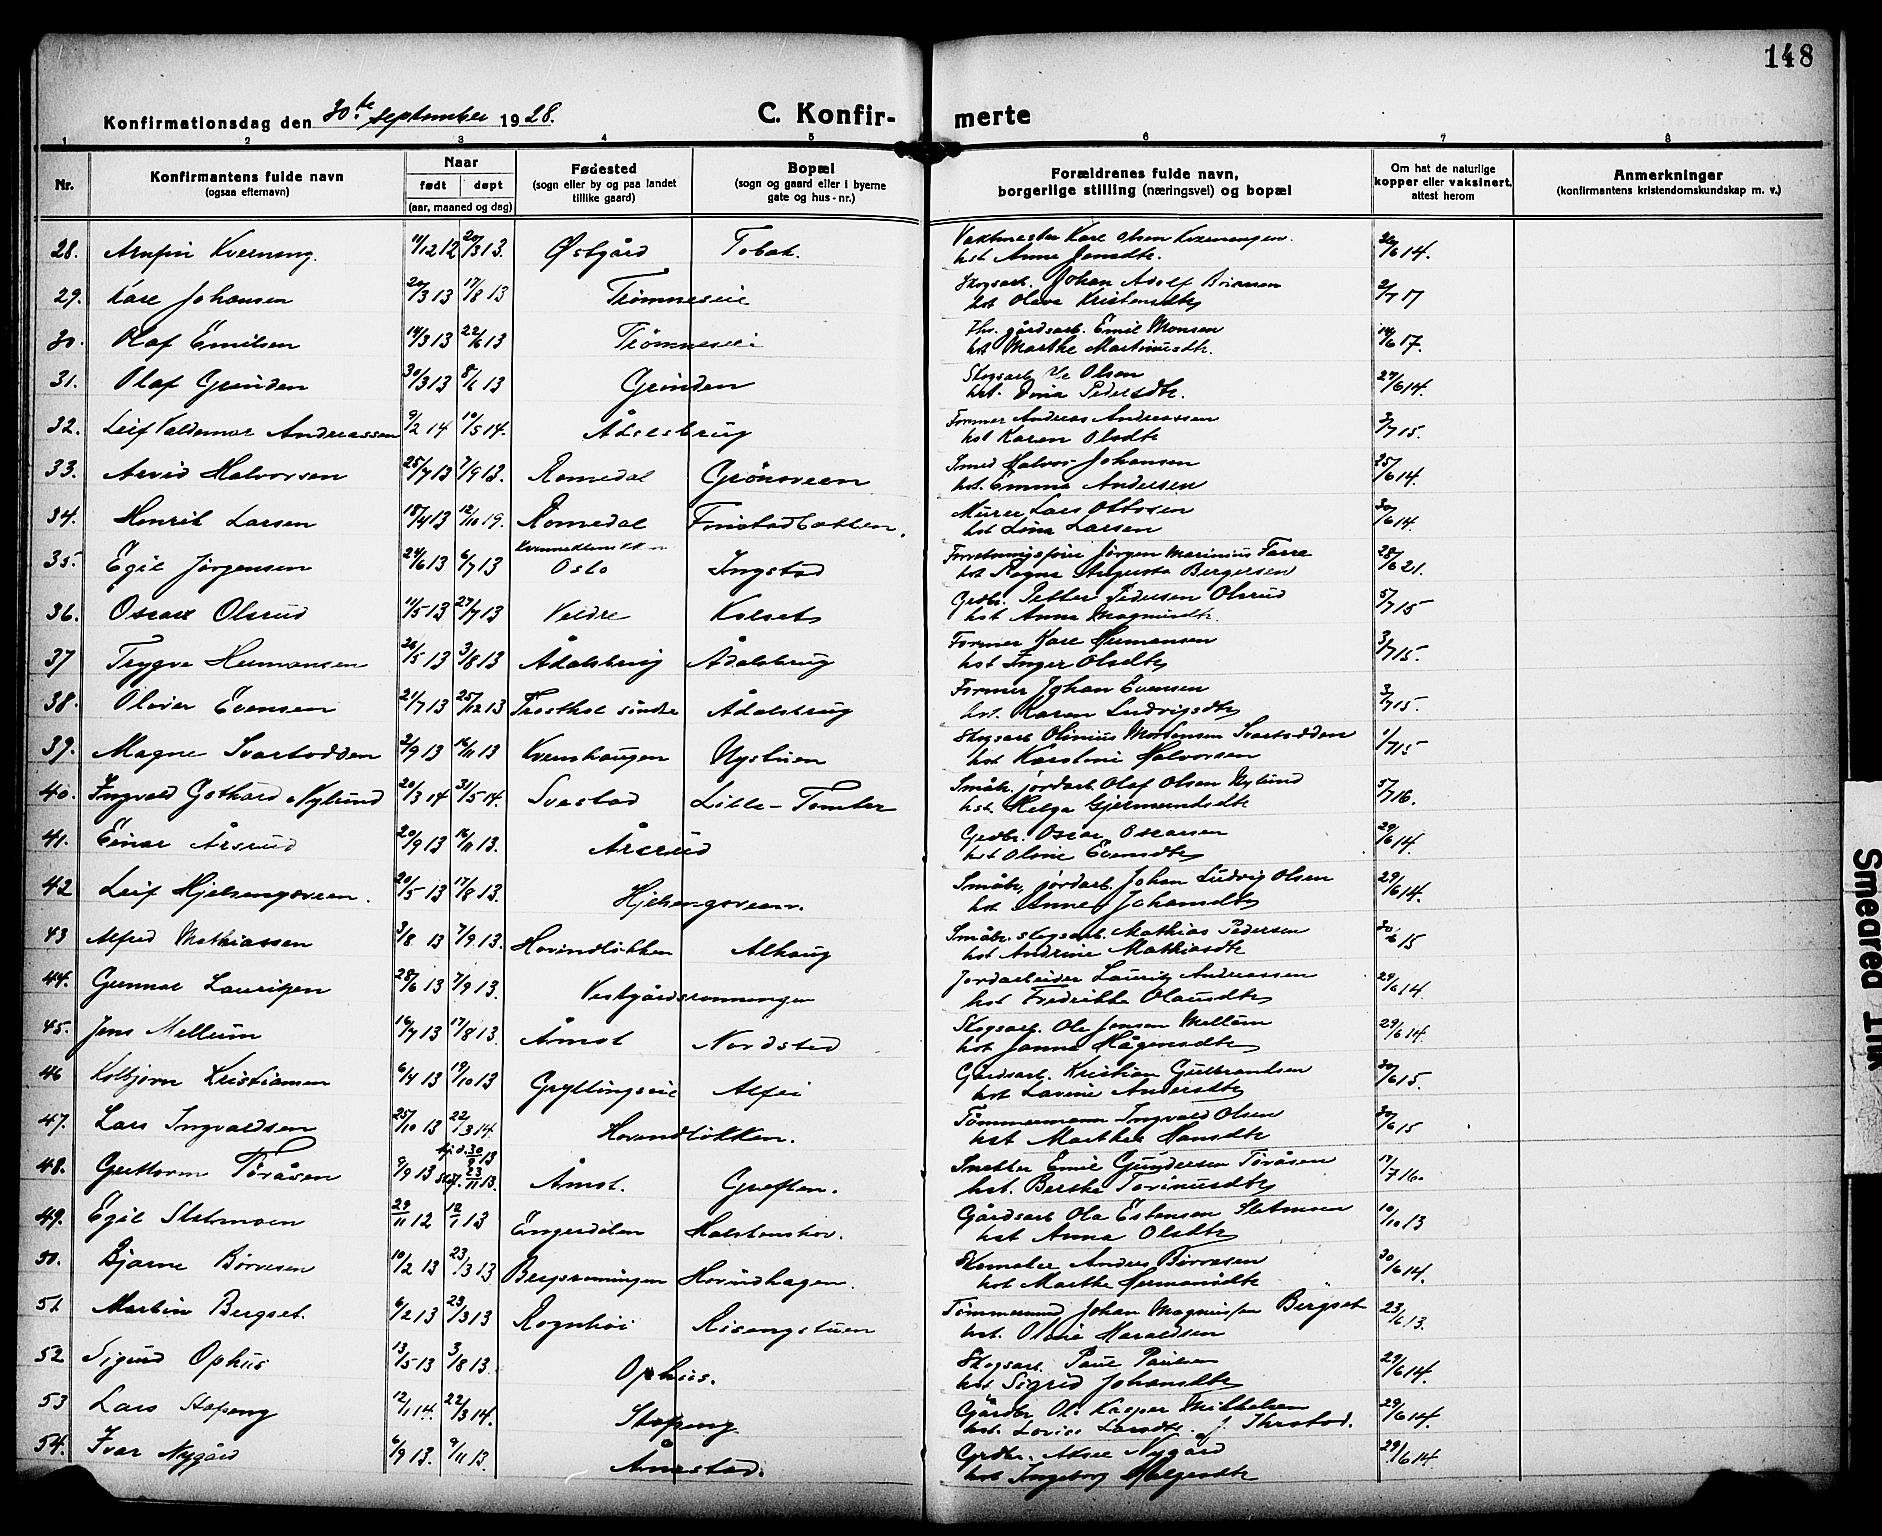 148
Konfirmationsdag den 30te september 1928.
C. Konfir-merte
1 2 3 4 5 6 7 8
Nr.
Konfirmantens fulde navn
(ogsaa efternavn)
Naar
født døpt
(aar, maaned og dag)
Fødested
(sogn eller by og paa landet
tillike gaard)
Bopæl
(sogn og gaard eller i byerne
gate og hus-nr.)
Forældrenes fulde navn,
borgerlige stilling (næringsvei) og bopæl
Om hat de naturlige
kopper eller vaksinert,
attest herom
Anmerkninger
(konfirmantens kristendomskundskap m. v.)
28. Arnfin Kverneng. 11/12 12 20/3 13. Østgård Tobak. Vaktmester Karl Olsen Kvernengen. 26/6 14.
hst Anna Jensdtr.
29. Kåre Johansen 20/3 13 17/8 13 Trømneseie Skogsarb. Johan Adolf 2/7 17
hst Olava Kristensdtr
30. Olaf Emilsen 14/3 13 22/6 13 Trømneseie Fhv. gårdsarb. Emil Monsen 14/6 17.
hst Marthe Martinusdtr.
31. Olaf Grinden 30/3 13 8/6 13 Grinden Skogsarb Ole Olsen 27/6 14.
hst. Dina Pedersdtr
32. Leif Valdemar Andreassen 9/2 14 10/5 14. Ådalsbrug Former Andreas Andreassen 3/7 15.
hst Karen Olsdtr
33. Arvid Halvorsen 25/7 13 7/9 13. Romedal Grønsveen Smed Halvor Johansen 25/6 14.
hst. Emma Andersen
34. Henrik Larsen 18/4 13 12/10 19. Romedal Murer Lars Ottosen 30/6 14.
hst Lina Larsen
35. Egil Jørgensen 24/6 13 6/7 13 Oslo Ingstad Forretningsfører Jørgen Marinius Farre 28/6 21.
hst Ragna Augusta Bergersen
36. Oscar Olsrud 11/5 13 27/7 13 Veldre Kolset Grdbr. Petter Pedersen Olsrud 5/7 15
hst Anna Magnusdtr.
37 Trygve Hermansen 26/5 13 3/8 13 Ådalsbrug Ådalsbrug Former Kare Hermansen 3/7 15.
hst Inger Olsdtr
38. Oliver Evensen 21/7 13 25/12 13 Frosthol søndre Ådalsbrug Former Johan Evensen 3/7 15.
hst. Karen Ludvigsdtr
39. Magne Svartodden 2/9 13 16/11 13 Kvernhaugen Nystuen Skogsarb Olinius Mortensen Svartodden 1/7 15
hst Karoline Halvorsen
40. Ingvald Gothard Nylund 20/3 14 31/5 14. Svestad Lille-Tomter Småbr. jordarb. Olaf Olsen Nylund 5/7 16.
hst. Helga Gjermundsdtr
41. Einar Årsrud 20/9 13 16/11 13. Årsrud Grdbr. Oscar Oscarsen 29/6 14.
hst Oline Evensdtr
42 Leif Hjelsengsveen. 20/5 13 17/8 13. Hjelsengsveen. Småbr. jordarb. Johan Ludvig Olsen 29/6 14.
hst Anne Johansdtr
43 Alfred Mathiassen 3/8 13 7/9 13. Hovindløkken Alhaug Småbr. skogsarb. Mathias Pedersen 30/6 15
hst Andrine Mathiasdtr
44. Gunnar Lauritzen 28/6 13 7/9 13. Vestgårdsrønningen Jordarbeider Lauritz Andreassen 29/6 14.
hst Fredrikke Olausdtr
45. Jens Mellum 16/7 13 17/8 13. Åmot Nordstad Skogsarb. Ole Jensen Mellum 29/6 14.
hst Janna Hågensdtr
46 Kolbjørn Kristiansen 6/4 13 19/10 13 Gryllingseie Alfei Gårdsarb. Kristian Gulbrandsen 30/6 15.
hst Lavine Andersdtr
47. Lars Ingvaldsen 25/10 13 22/3 14. Hovindløkken. Tømmermann Ingvald Olsen 30/6 15
hst Marthe Hansdtr
48. Guttorm Toråsen 9/9 13 hjd. 30/9 13 stf. 23/11 13. Åmot. Greften. Snekker Emil Gundersen Toråsen 17/7 16.
hst. Berthe Torinusdtr
49. Egil Sletmoen 29/11 12 12/1 13 Engerdalen Halstenshov. Gårdsarb Ola Estensen Sletmoen 10/10 13
hst Anna Olsdtr
50. Bjarne Børresen 10/2 13 23/3 13 Bergsrønningen Hovindhagen. Skomaker Anders Børresen 30/6 14.
hst Marthe Hermansdtr
51 Martin Bergset. 6/2 13 23/3 13 Rognhøi Risengstuen Tømmermand Johan Magnussen Bergset 23/6 13.
hst. Oline Haraldsen
52 Sigurd Ophus 13/5 13 3/8 13. Ophus. Skogsarb. Paul Paulsen 29/6 14.
hst Sigrid Johansdtr
53 Lars Stopeng 12/1 14. 22/3 14. Stopeng. Gårdbr. Ol. Kasper Mikkelsen 29/6 14.
hst. Lovise Larsdtr.
54. Ivar Nygård 6/9 13. 9/11 13. Ånestad. Grdbr. Aksel Nygård 29/6 14
hst Ingeborg Helgesdtr
Smeared Ink